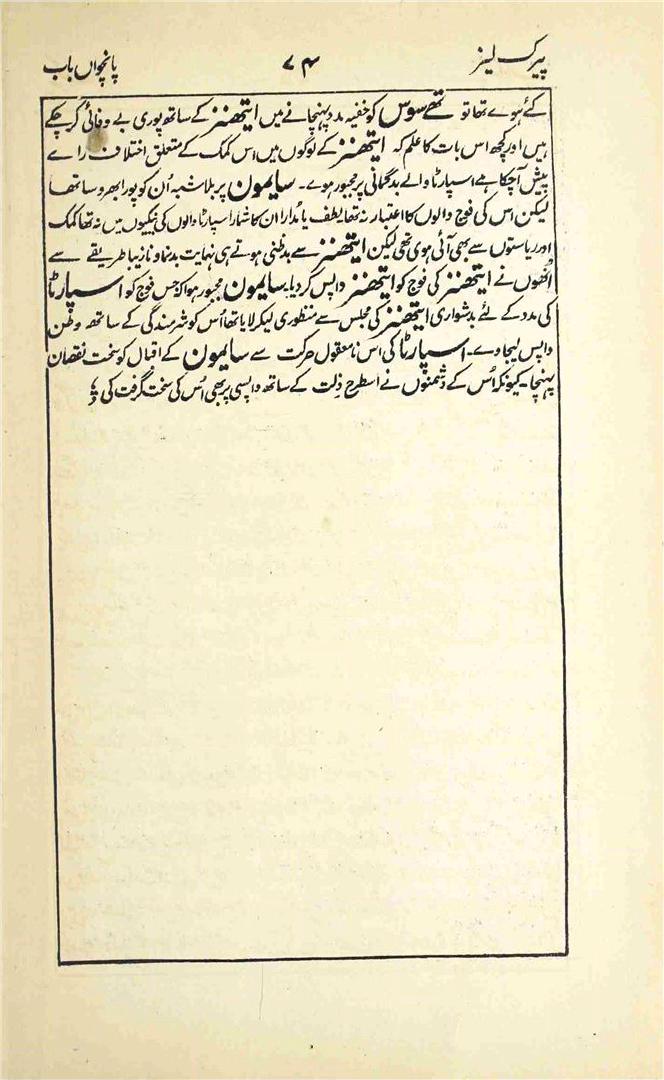 پیرک لیز ۷۴ پانچواں باب
کئے ہوے تھا تو تھے سوس کو خفیہ مدد پہنچانے میں ایتھنز کے ساتھ پوری بے وفائی کر چکے
ہیں اور کچھ اس بات کا علم کہ ایتھنز کے لوگوں میں اس کمک کے متعلق اختلاف راے
پیش آچکا ہے اسپارٹا والے بدگمانی پر مجبور ہوے۔ سایمون پر بلاشبہ اُن کو پورا بھروسا تھا
لیکن اس کی فوج والوں کا اعتبار نہ تھا لطف یا مُدارا ان کا شمار اسپارٹا والوں کی نیکیوں میں نہ تھا کمک
اور ریاستوں سے بھی آئی ہوی تھی لیکن ایتھنز سے بدظنی ہوتے ہی نہایت بدنما و نازیبا طریقے سے
اُنھوں نے ایتھنز کی فوج کو ایتھنز واپس کر دیا۔ سایمون مجبور ہوا کہ جس فوج کو اسپارٹا
کی مدد کے لئے بدشواری ایتھنز کی مجلس سے منظوری لیکر لایا تھا اُس کو شرمندگی کے ساتھ وطن
واپس لیجاوے۔ اسپارٹا کی اس نامعقول حرکت سے سایمون کے اقبال کو سخت نقصان
پہنچا۔ کیونکہ اُس کے دُشمنوں نے اسطرح ذِلت کے ساتھ واپسی پر بھی اُس کی سخت گرفت کی